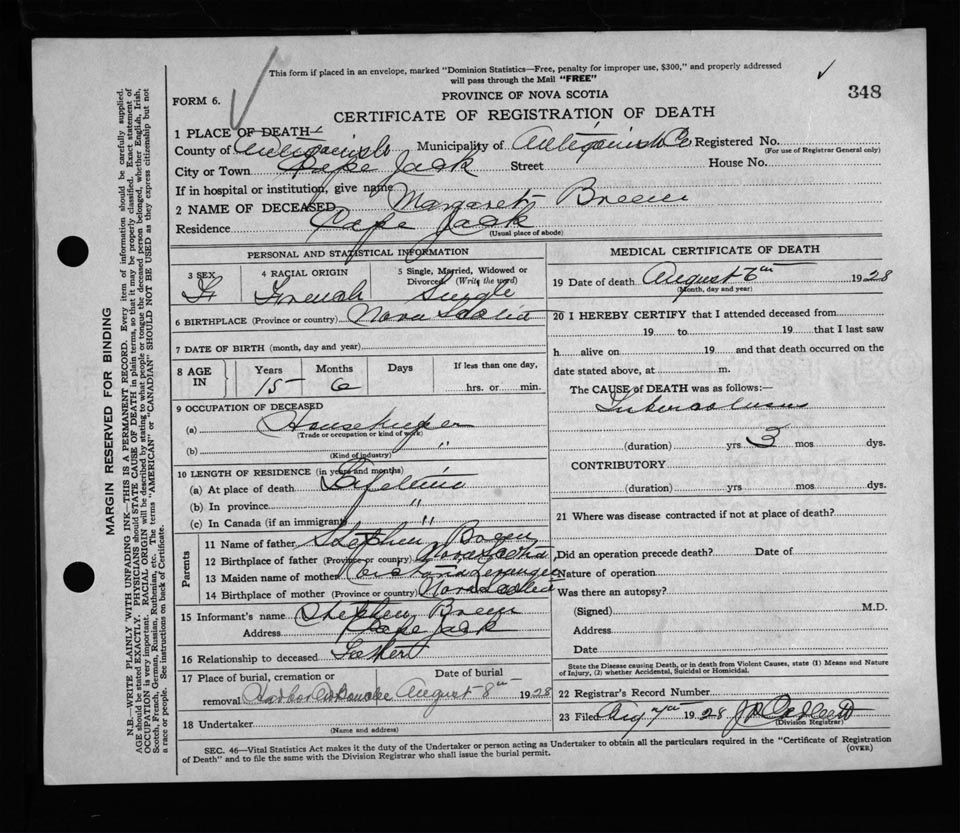 This form if placed in an envelope, marked "Dominion Statistics—Free, penalty for improper use, $300," and properly addressed
will pass through the Mail "FREE"
348
PROVINCE OF NOVA SCOTIA
FORM 6.
CERTIFICATE OF REGISTRATION OF DEATH
1 PLACE OF DEATH—
County of Antigonish Municipality of Antigonish Co Registered No.
(For use of Registrar General only)
City or Town Cape Jack Street House No.
If in hospital or institution, give name
2 NAME OF DECEASED Margaret Breen
Residence Cape Jack
(Usual place of abode)
PERSONAL AND STATISTICAL INFORMATION
3 SEX 4 RACIAL ORIGIN 5 Single, Married, Widowed or
Divorced (Write the word)
F French Single
6 BIRTHPLACE (Province or country) Nova Scotia
7 DATE OF BIRTH (month, day and year)
8 AGE IN Years Months Days If less than one day,
15 6 hrs. or min.
9 OCCUPATION OF DECEASED
(a) Housekeeper
(Trade or occupation or kind of work)
(b) "
(Kind of industry)
10 LENGTH OF RESIDENCE (in years and months)
(a) At place of death Lifetime
(b) In province "
(c) In Canada (if an immigrant) "
Parents
11 Name of father Stephen Breen
12 Birthplace of father (Province or country) Nova Scotia
13 Maiden name of mother
14 Birthplace of mother (Province or country) Nova Scotia
15 Informant's name Stephen Breen
Address Cape Jack
16 Relationship to deceased Father
17 Place of burial, cremation or Date of burial
removal Harbor Au Bouche August 8th 1928
18 Undertaker
(Name and address)
MEDICAL CERTIFICATE OF DEATH
19 Date of death August 6th 1928
(Month, day and year)
20 I HEREBY CERTIFY that I attended deceased from
19 to 19 that I last saw
h alive on 19 and that death occurred on the
date stated above, at m.
The CAUSE of DEATH was as follows:—
Tuberculosis
(duration) yrs 3 mos dys.
CONTRIBUTORY
(duration) yrs mos dys.
21 Where was disease contracted if not at place of death?
Did an operation precede death? Date of
Nature of operation
Was there an autopsy?
(Signed) M.D.
Address
Date
State the Disease causing Death, or in death from Violent Causes, state (1) Means and Nature
of Injury, (2) whether Accidental, Suicidal or Homicidal.
22 Registrar's Record Number
23 Filed Aug 7th 1928
(Division Registrar)
SEC. 46—Vital Statistics Act makes it the duty of the Undertaker or person acting as Undertaker to obtain all the particulars required in the "Certificate of Registration
of Death" and to file the same with the Division Registrar who shall issue the burial permit.
(OVER)
MARGIN RESERVED FOR BINDING
N.B.—WRITE PLAINLY WITH UNFADING INK—THIS IS A PERMANENT RECORD. Every item of information should be carefully supplied.
AGE should be stated EXACTLY. PHYSICIANS should STATE CAUSE OF DEATH in plain terms, so that it may be properly classified. Exact statement of
OCCUPATION is very important. RACIAL ORIGIN will be described by stating to what people or tongue the deceased person belonged, whether English, Irish,
Scotch, French, German, Russian, Ruthenian, etc. The terms "AMERICAN" or "CANADIAN" SHOULD NOT BE USED as they express citizenship but not
a race or people. See instructions on back of Certificate.